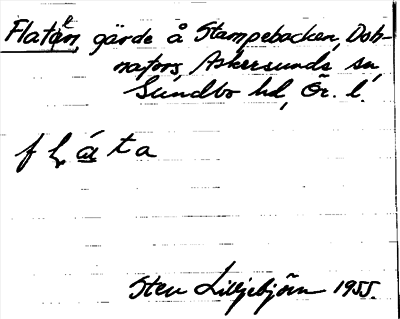 Flatån, gärde å Stampebacken, Doh-
nafors, Askersunds sn,
Sundbo hd, Ör. l.
flåta
Sten Lilljebjörn 1955.